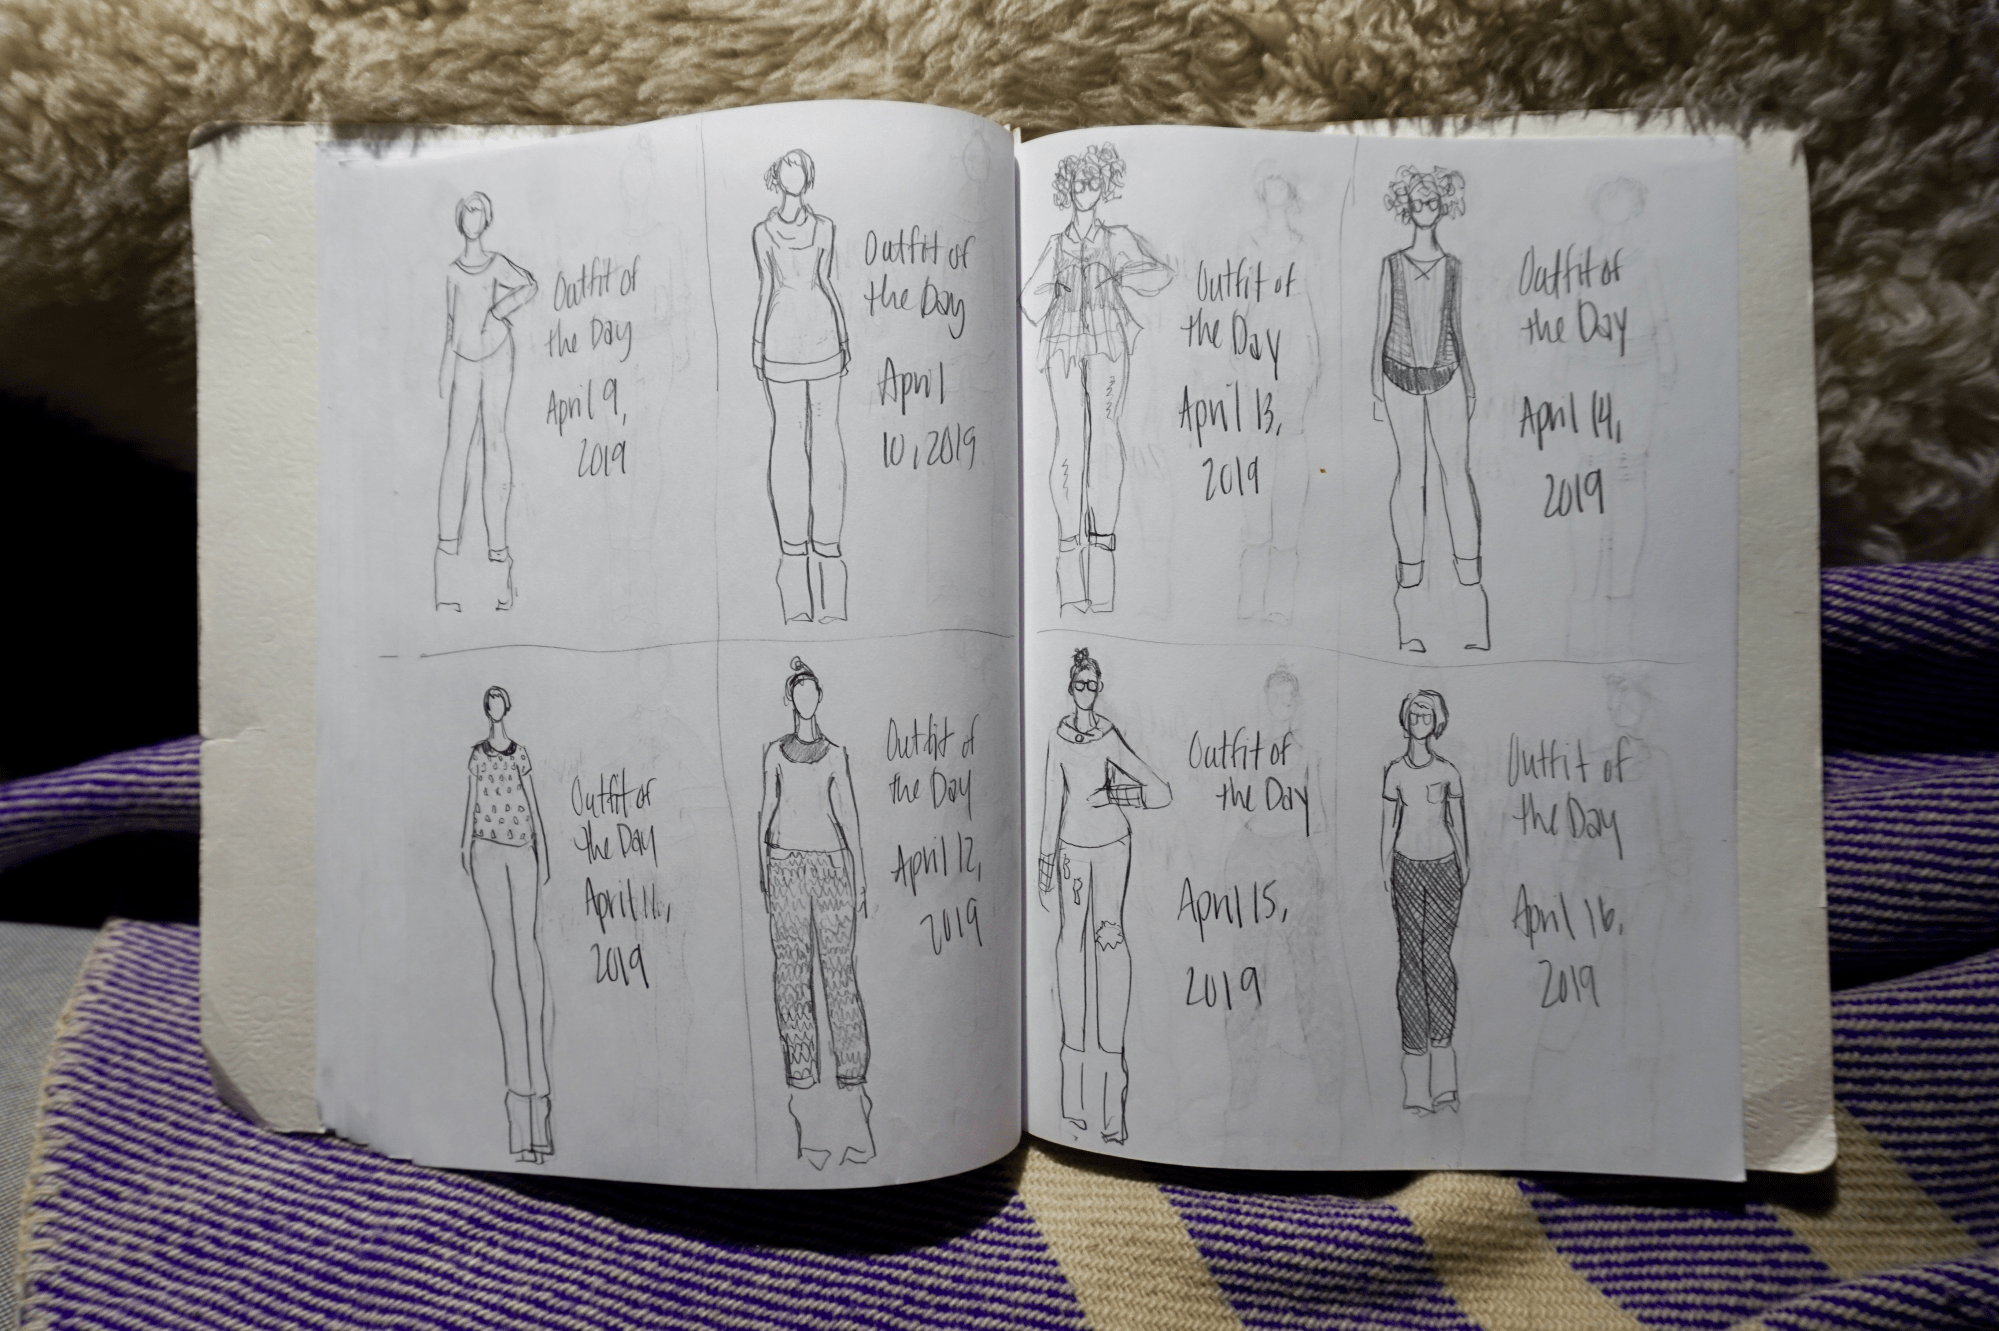 Outfit of
the Day
April 9,
2019
Outfit of
the Day
April
10, 2019
Outfit of
the Day
April 11,
2019
Outfit of
the Day
April 12,
2019
Outfit of
the Day
April 13,
2019
Outfit of
the Day
April 14,
2019
Outfit of
the Day
April 15,
2019
Outfit of
the Day
April 16,
2019